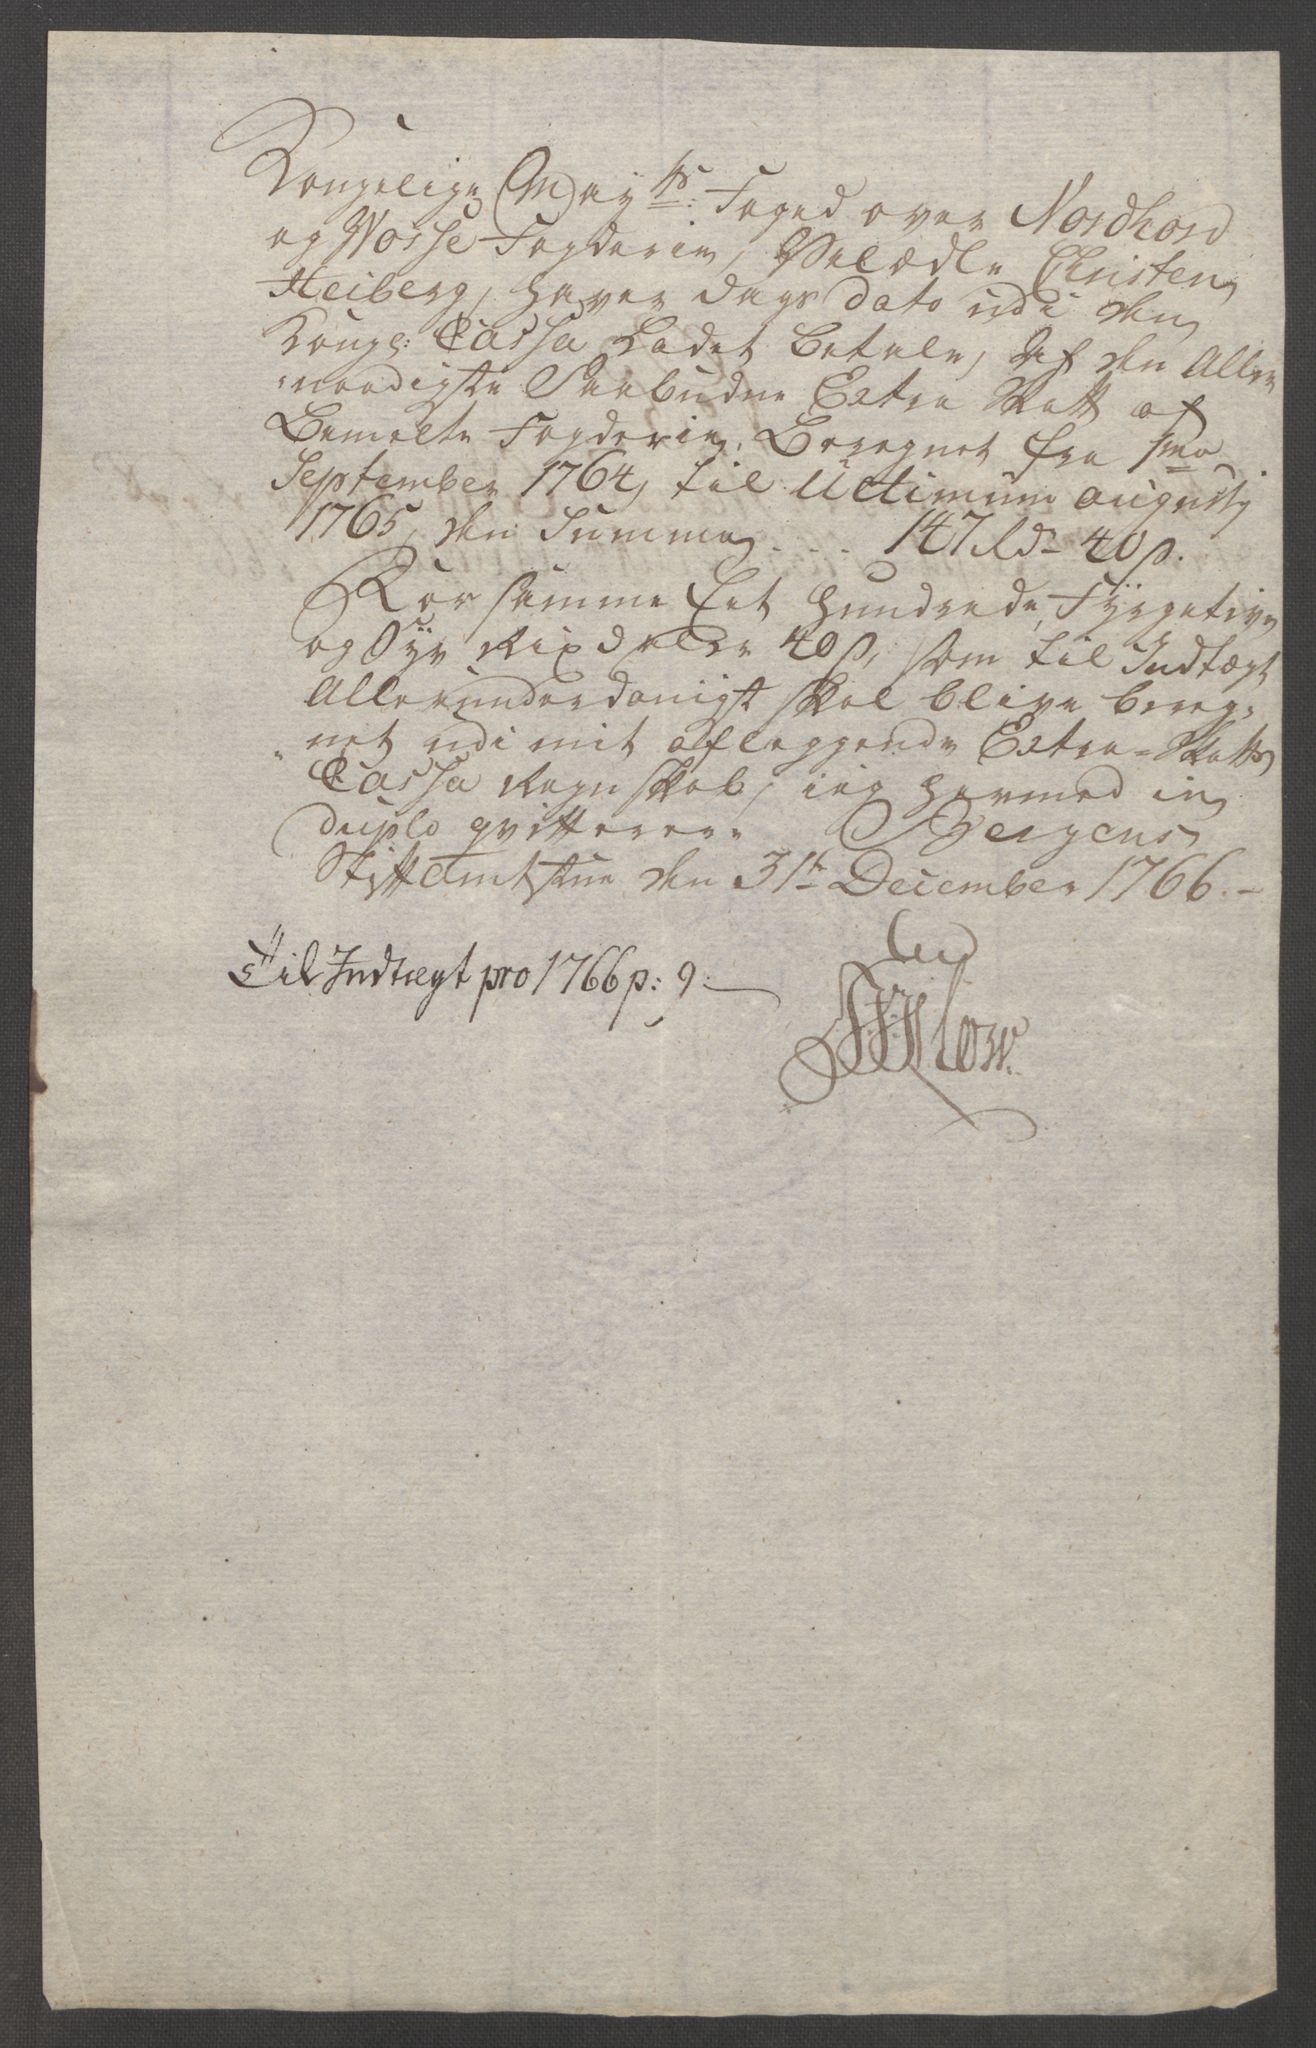 Kongelige Mayts: Foged over Nordhord
og Wosse Fogderie, Velædle Christen
Heiberg, haver dags dato udi den
Kongl: Cassa Ladet betale, Af den Aller
naadigste Paabudne Extra Skatt af
Bemelte Fogderie, Beregnet fra 1mo
September 1764, til Ultimum augusty
1765, den Summa . . . 147 Rd 40 s.
For samme Eet Hundrede, Fyrgetive
og Syv Rixdaler 40 s, som til Indtægt
Allerunderdanigst skal blive bereg-
net udi mit aflæggende Extra-Skatts
Cassa Regnskab, ieg hermed in
duplo qvitterer. Bergens
Stiftamtstue den 31te December 1766.
Til Indtægt pro 1766 p: 9.